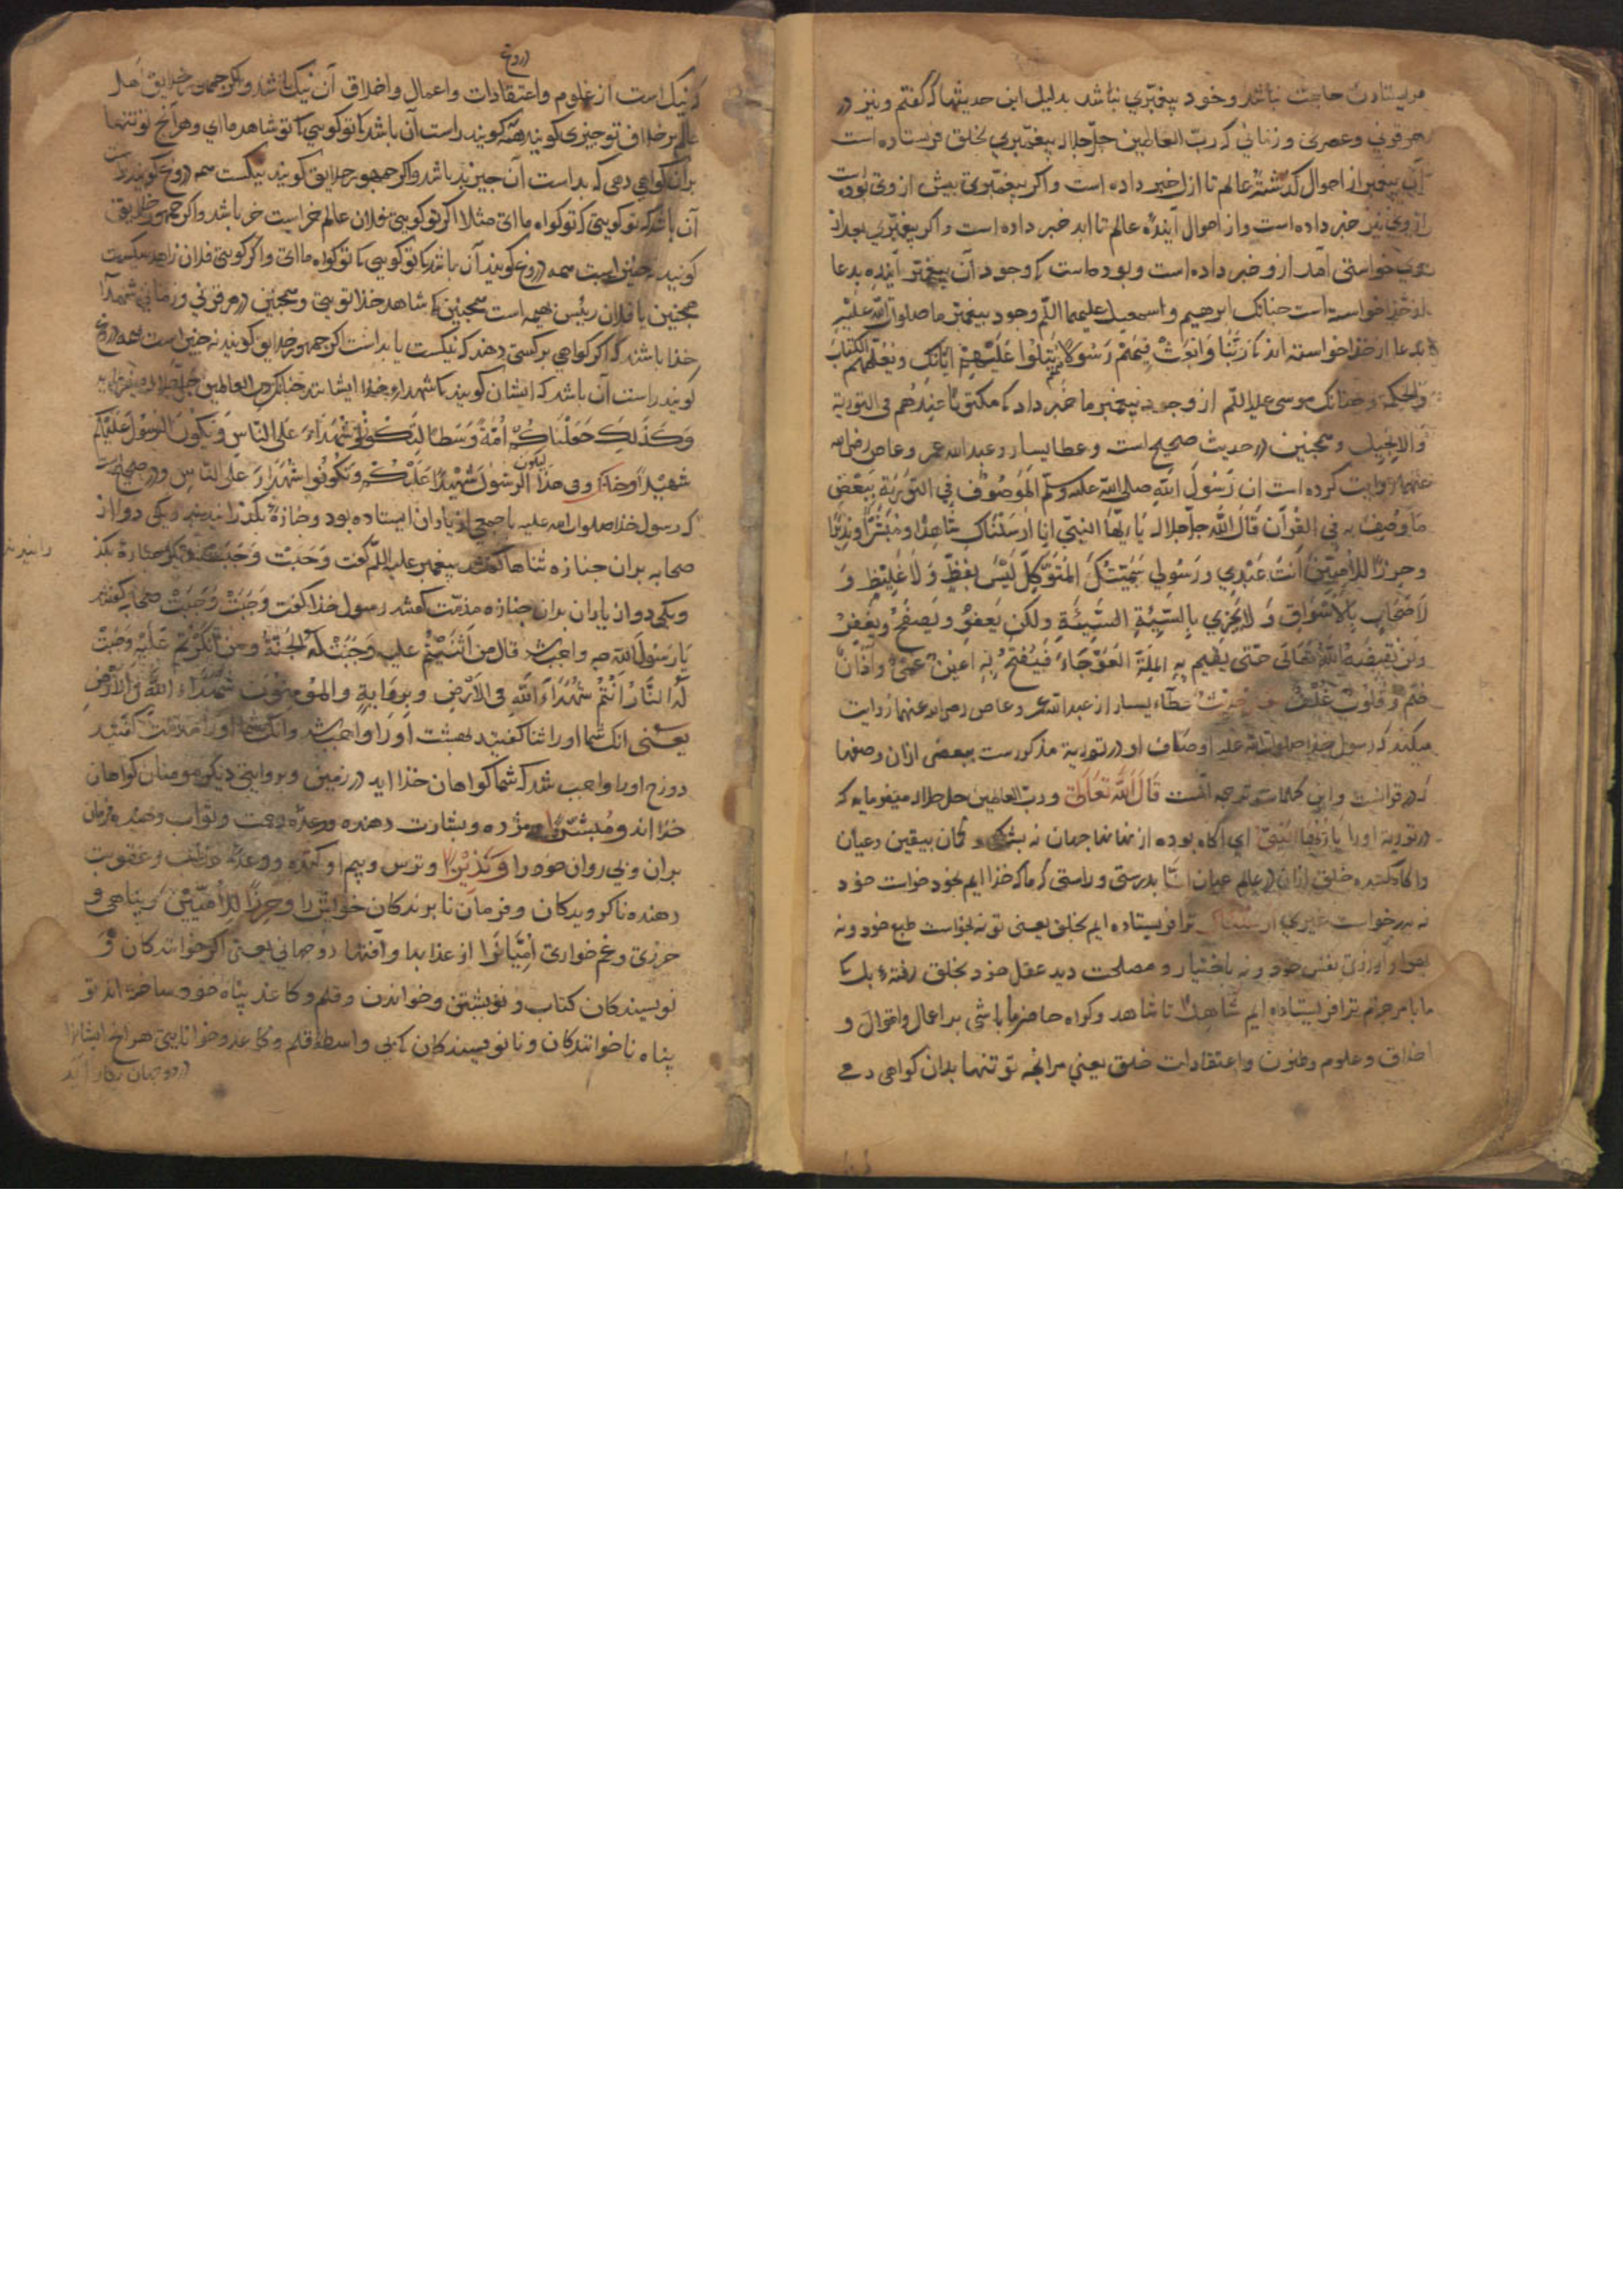 فرستادن حاجت نباشد و خود پیغمبری نباشد بدلیل این حدیثها که گفتم و نیز در
هر قرنی و عصری و زمانی که ربّ العالمین جلّ جلاله پیغمبری بخلق فرستاده است
آن پیغمبر از احوال گذشتهٔ عالم تا ازل خبر داده است و اگر پیغمبری پیش از وی بوده است
از وی نیز خبر داده است و از احوال آیندهٔ عالم تا ابد خبر داده است و اگر پیغمبری بعد از
وی خواستی آمد از و خبر داده است و بوده است که وجود آن پیغمبر آینده بدعا
از خذا خواسته است چنانک ابرهیم و اسمعیل علیهما اللّم وجود پیغمبر ما صلوات الله علیه
بدعا از خذا خواسته اند که رَبَّنَا وَابْعَثْ فِیهِمْ رَسُولًا مِنْهُمْ یَتْلُوا عَلَیْهِمْ ایَاتِکَ وَیُعَلِّمُهُمُ الْکِتَابَ
وَالحِکمَة و چنانک موسی علیه اللّم از وجود پیغمبر ما خبر داد که مکتوبًا عِنْدَهُمْ فی التوریة
وَالاِنجیل و همچنین در حدیث صحیح است و عطا یسار و عبدالله عمر و عاص رضی الله
عنهما روایت کرده است ان رَسُولَ اللهِ صلی الله علیه وسلّم لَمَوصُوفٌ فِی التَّوریَةِ بِبَعْضِ
مَا وُصِفَ بِهِ فِی القُرْآن قَالَ اللهُ جلّ جلاله یَا ایّهَا النَّبیّ انا ارْسَلْنَاکَ شَاهِدًا وَمُبَشّرًا وَنَذِیرًا
وحِرزًا لِلاُمِیّینَ اَنْتَ عَبْدِی وَرَسُولِی سَمَّیْتُکَ المُتَوَکِّلَ لَیْسَ بِفَظٍّ وَلَا غَلِیظٍ وَ
لَا صَخّابٍ بِالاَسْوَاقِ وَلَا یَجْزِی بِالسَّیِّئَةِ السَّیِّئَةَ ولکن یَعفُو وَیَصفَحُ وَیغفِرُ
ولَن یَقبِضَهُ اللهُ تَعَالَی حَتّی یُقِیمَ بِهِ المِلَةَ العَوْجَاءَ فَیُفْتَحُ بِهِ اَعیُنٌ عُمْیٌ وآذَانٌ
صُمٌّ وَقُلُوبٌ غُلْفٌ عطاء یسار از عبدالله عمر و عاص رضی الله عنهما روایت
میکند که رسول خذا صلوات الله علیه اوصاف او در توریة مذکورست ببعضی از ان وصفها
که در قرانست و این کلماتست ترجمه انست قَالَ اللهُ تَعَالَی و ربّ العالمین جل جلاله میفرماید که
در توریة او را یَا اَیُّهَا النَّبِیّ ای آگاه بوده از نهانها جهان نه بشک و گمان بیقین و عیان
و اگاه کننده خلق ازان در عالم عیان انّا بدرستی و راستی که ما که خذا ایم بخود خواست خود
نه بدرخواست غیری ارْسَلْنَاکَ ترا فریستاده ایم بخلق یعنی تو نه بخواست طبع خود و نه
بهوا و ارزوی نفس خود و نه باختیار و مصلحت دید عقل خود بخلق رفتهٔ بل که
ما بامر جزم ترا فریستاده ایم شَاهِدًا تا شاهد و کواه حاضر ما باشی بر اعمال و اقوال و
اخلاق و علوم و ظنون و اعتقادات خلق یعنی هر انچه تو تنها بدان کواهی دهی
دروغ
که نیک است از علوم و اعتقادات و اعمال و اخلاق آن نیک باشد و اگر جمهور خلایق اهل
عالم بر خلاف تو چیزی کویند همه کویند راست آن باشد که تو کویی که تو شاهد ما ای و هر آنچ تو تنها
بران کواهی دهی که بد است آن چیز بد باشد و اگر جمهور خلایق کویند نیکست همه دروغ کویند راست
آن باشد که تو کویی که تو کواه ما ای مثلا اکر تو کویی فلان عالم خر است خر باشد و اکر جمهور خلایق
کویند نه چنین است همه دروغ کویند آن باشد که تو کویی که تو کواه ما ای و اکر کویی فلان زاهد سکست
همچنین یا فلان رئیس بهیمه است همچنین که شاهد خذا تویی و همچنین در هر قرنی و زمانی شهدا
خذا باشند که اکر کواهی بر کسی دهند که نیکست یا بد است اکر جمهور خلایق کویند نه چنین است همه دروغ
کویند راست آن باشد که ایشان کویند که شهداء خذا ایشانند چنانک رب العالمین جلّ جلاله میفرماید
وَکَذَلِکَ جَعَلْنَاکُمْ اُمَّةً وَسَطًا لِتَکُونُوا شُهَدَاءَ عَلَی النَّاسِ وَیَکُونَ الرَسُولُ عَلَیْکُمْ
لیکون
شَهِیدًا وفی هذا الرَسُولُ شَهِیدًا عَلَیْکُمْ وَتَکُونُوا شُهَدَاءَ عَلَی النَّاسِ و در صحیح است
که رسول خذا صلوات الله علیه با جمعی از یاران ایستاده بود و جنازهٔ بگذرانیدند یکی دو از
صحابه بران جنازه ثناها گفتند پیغمبر علیه اللّم کفت وَجَبَت وَجَبَت جنازهٔ بکذ
رانیدند
و یکی دو از یاران بران جنازه مذمّت کفتند رسول خذا کفت وَجَبَتْ وَجَبَتْ صحابه کفتند
یَا رَسُولَ الله چه واجب شد قال مَن اَثنَیْتُمْ عَلَیهِ وَجَبَتْ لَهُ الْجَنَّةُ وَمَن عَلَیْهِ وَجَبَتْ
لَهُ النَّارُ اَنْتُمْ شُهَدَاءَ اللهِ فِی الاَرْضِ وَبِرِوَایةٍ والمُوْمِنُونَ شُهَدَاءُ اللهِ فی الاَرْضِ
یعنی انک شما او را ثنا کفتید بهشت او را واجب شد و انک شما او را مذمّت کفتید
دوزخ او را واجب شد که شما کواهان خذا اید در زمین و بروایتی دیکر مومنان کواهان
خذا اند وَمُبَشِّرًا و مژده و بشارت دهنده وعدهٔ رحمت و ثواب دهنده فرمان
بران و پی روان خود را وَنَذِیْرًا و ترس و بیم او کننده و وعدهٔ عذاب و عقوبت
دهنده ناکرویدکان و فرمان نابرندکان خوانش را وحِرزًا لِلاُمِّیِّینَ و پناهی و
حرزی و غم خواری اُمِّیَانْرَا از عذابها و آفتها دو جهانی یعنی اکر خوانندکان وَ
نویسندکان کتاب و نوبشتن و خواندن و قلم و کاغذ پناه خود ساخته اند تو
پناه ناخوانندکان و نانویسندکان که بی واسطهٔ قلم و کاغذ و خوانایی هر انچ ایشانرا
در دو جهان بکار آید